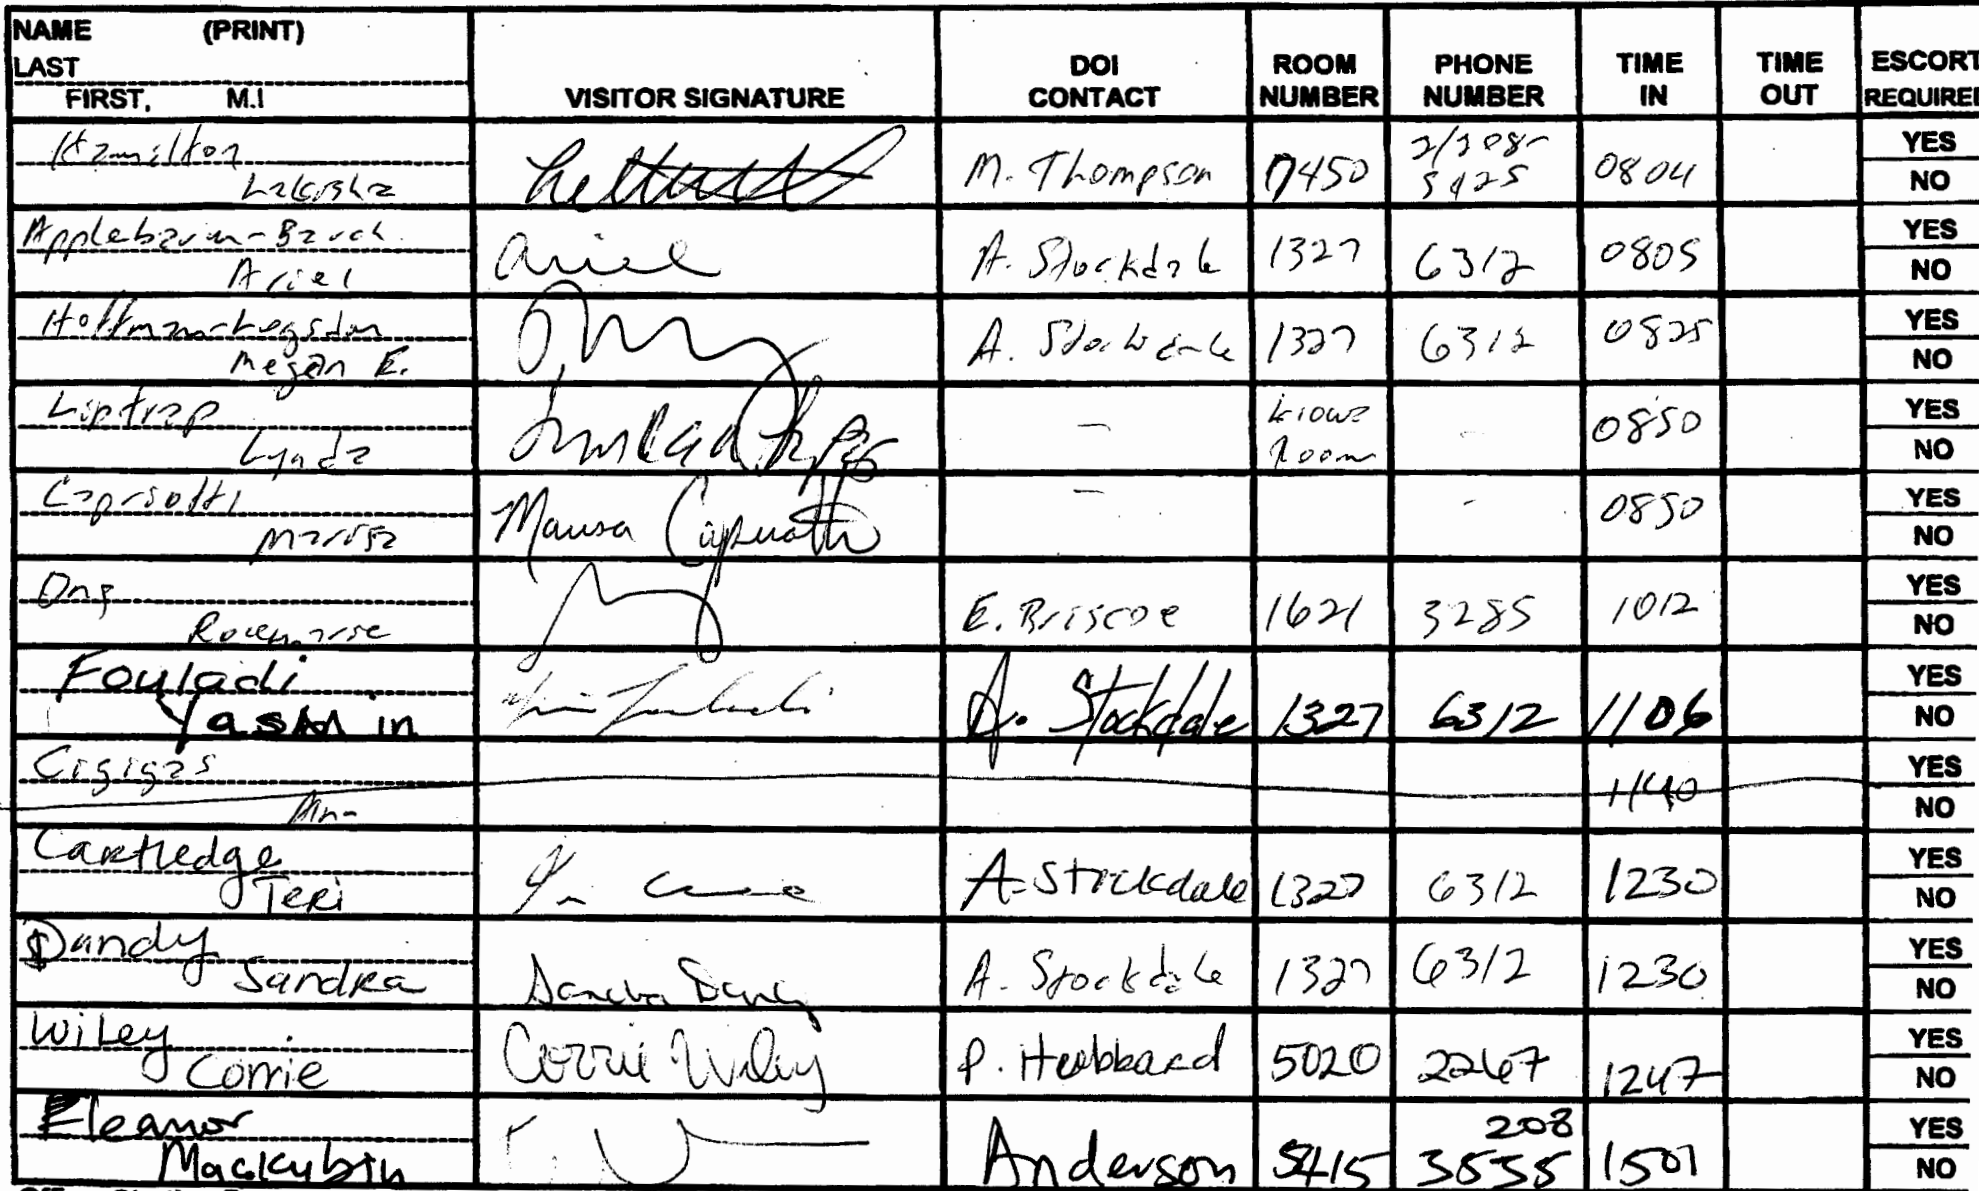 NAME (PRINT)
LAST
FIRST, M.I
VISITOR SIGNATURE
DOI CONTACT
ROOM NUMBER
PHONE NUMBER
TIME IN
TIME OUT
ESCORT REQUIRED
Hamilton
Lakisha M. Thompson 7450 0804 YES NO
Applebaum-Baruch
Ariel Ariel A. Stockdale 1327 6312 0805 YES NO
Megan E. A. Stockdale 1327 6312 0825 YES NO
Liptrap
Lynda - Kiowa Room - 0850 YES NO
Marisa - - 0850 YES NO
Ong
Rosemarie E. Briscoe 1621 3285 1012 YES NO
Fouladi
Yasmin A. Stockdale 1327 6312 1106 YES NO
1140 YES NO
Cartledge
Teri A. Stockdale 1327 6312 1230 YES NO
Dandy
Sandra A. Stockdale 1327 6312 1230 YES NO
Wiley
Corrie Corrie Wiley P. Hubbard 5020 2267 1247 YES NO
Eleanor
Mackubin Anderson 5415 208 3535 1501 YES NO